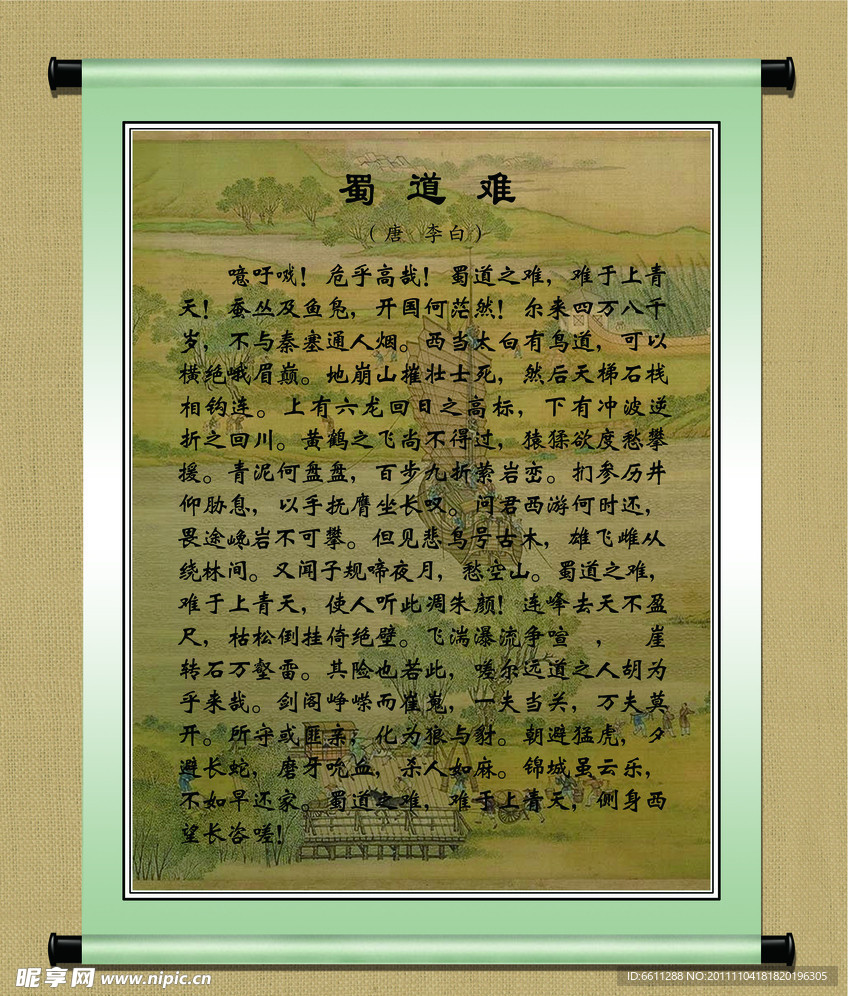 蜀道难
（唐 李白）
噫吁嘁！危乎高哉！蜀道之难，难于上青
天！蚕丛及鱼凫，开国何茫然！尔来四万八千
岁，不与秦塞通人烟。西当太白有鸟道，可以
横绝峨眉巅。地崩山摧壮士死，然后天梯石栈
相钩连。上有六龙回日之高标，下有冲波逆
折之回川。黄鹤之飞尚不得过，猿猱欲度愁攀
援。青泥何盘盘，百步九折萦岩峦。扪参历井
仰胁息，以手抚膺坐长叹。问君西游何时还，
畏途巉岩不可攀。但见悲鸟号古木，雄飞雌从
绕林间。又闻子规啼夜月，愁空山。蜀道之难，
难于上青天，使人听此凋朱颜！连峰去天不盈
尺，枯松倒挂倚绝壁。飞湍瀑流争喧 ， 崖
转石万壑雷。其险也若此，嗟尔远道之人胡为
乎来哉。剑阁峥嵘而崔嵬，一夫当关，万夫莫
开。所守或匪亲，化为狼与豺。朝避猛虎，夕
避长蛇，磨牙吮血，杀人如麻。锦城虽云乐，
不如早还家。蜀道之难，难于上青天，侧身西
望长咨嗟！
昵享网 www.nipic.cn
ID:6611288 NO:20111104181820196305